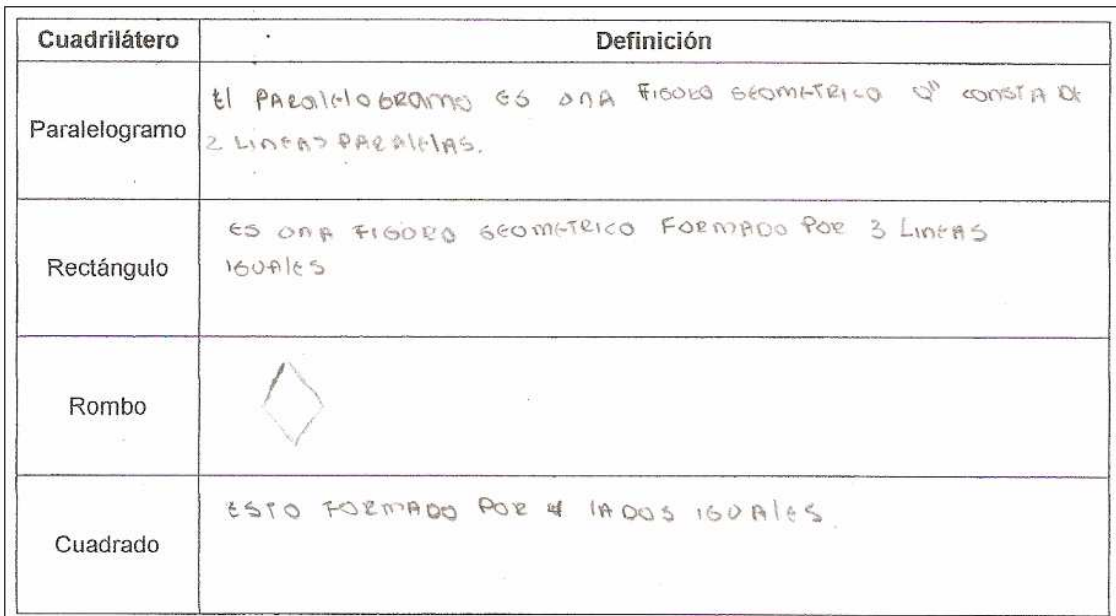 Cuadrilátero Definición
Paralelogramo
El PARAlElOGRAmO ES UNA FIGURA GEOMETRICO Q" CONSTA DE
2 LINEAS PARAlElAS.
Rectángulo
ES UNA FIGURA GEOMETRICO FORMADO POR 3 LINEAS
IGUAlES
Rombo
Cuadrado
ESTO FORMADO POR 4 lADOS IGUAlES.